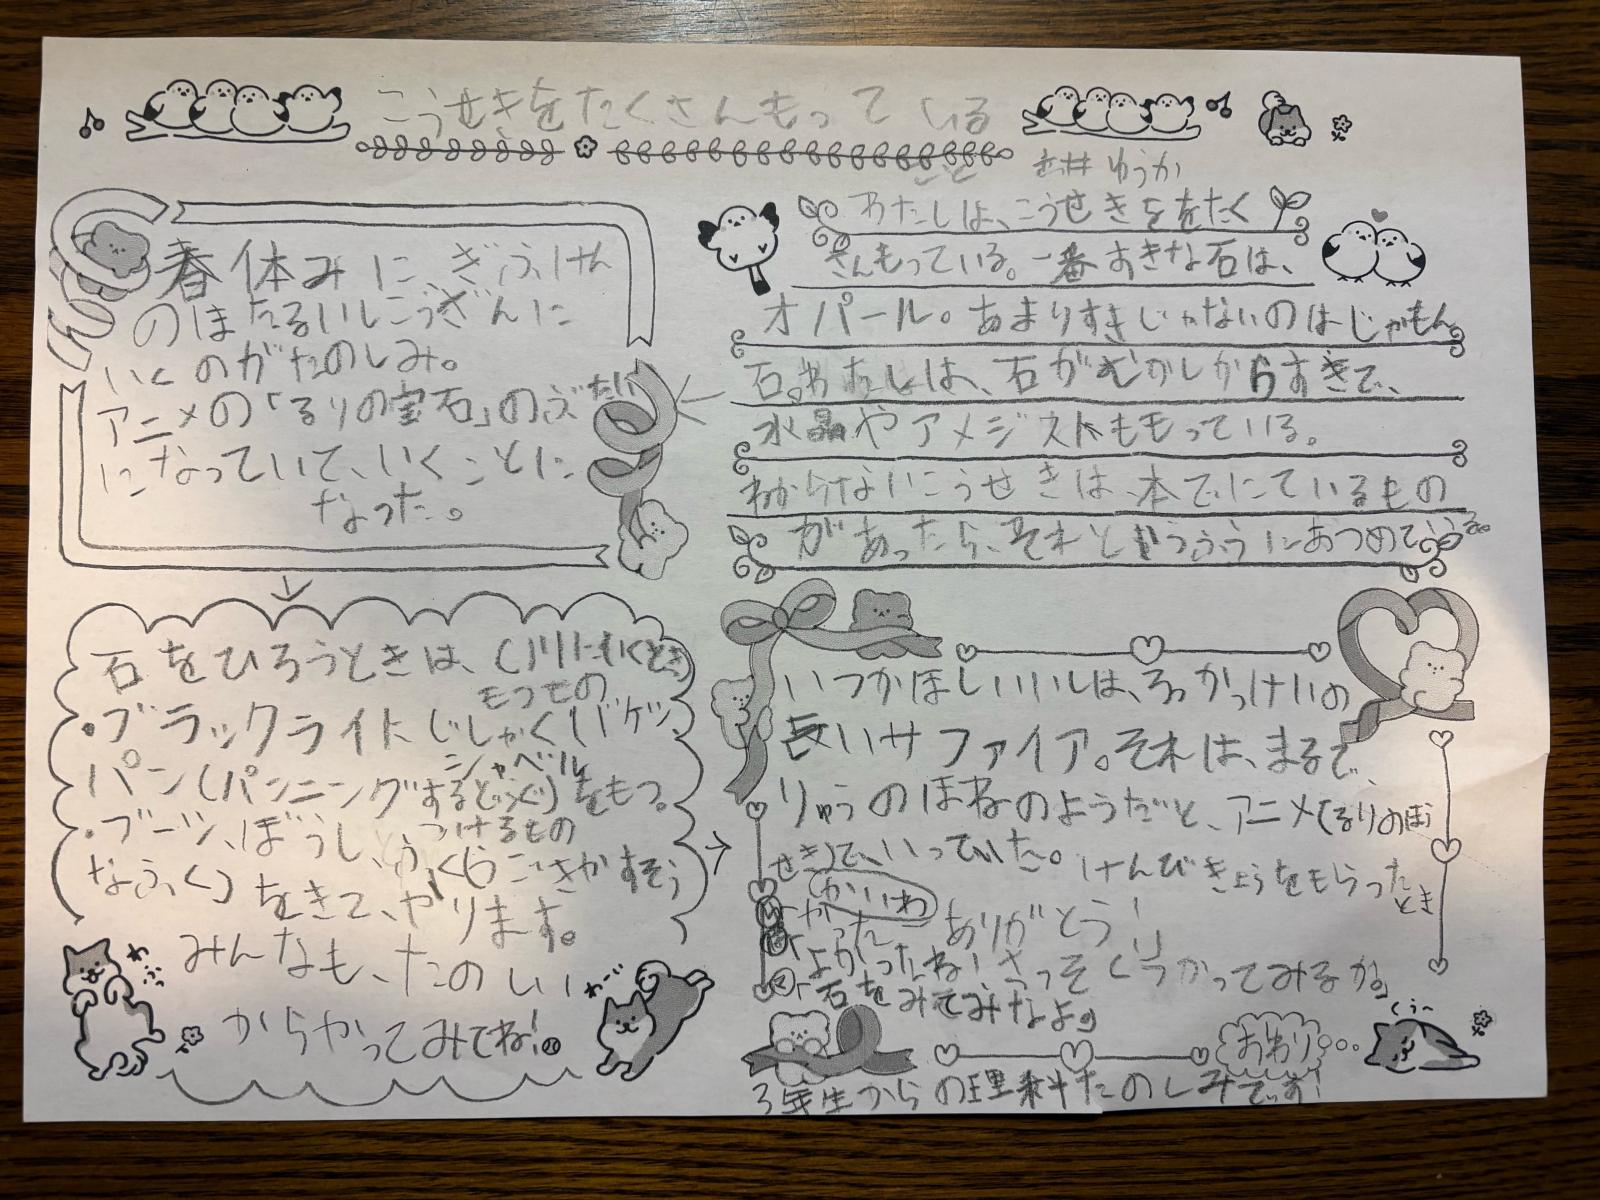 こうせきをたくさんもっている
こと
ゆうか
わたしは、こうせきををたく
さんもっている。一番すきな石は、
オパール。あまりすきじゃないのはじゃもん
石。わたしは、石がむかしからすきで、
水晶やアメジストももっている。
わからないこうせきは、本でにているもの
があったら、それとどうふうにあつめてうる。
春休みに、ぎふけん
のほたるいしこうざんに
いくのがたのしみ。
アニメの「るりの宝石」のぶたい
になっていて、いくことに
なった。
石をひろうときは、(川にいくとき)
もつもの
・ブラックライト、じしゃく(バケツ)
シャベル
パン(パンニングするどうぐ)をもつ。
・ブーツ、ぼうし、ふく(らごさかすそう
つけるもの
なふく)をきて、やります。
みんなも、たのしい
からやってみてね!
わふふ
わーい
いつかほしいいしは、ろっかっけいの
長いサファイア。それは、まるで、
りゅうのほねのようだと、アニメ(るりのほう
せき)で、いっていた。
けんびきょうをもらった
とき
(かいわ)
ありがとう!」
「よかったね!さっそくつかってみるか。」
「石をみてみなよ。」
おわり
くぅ〜
3年生からの理科たのしみです!